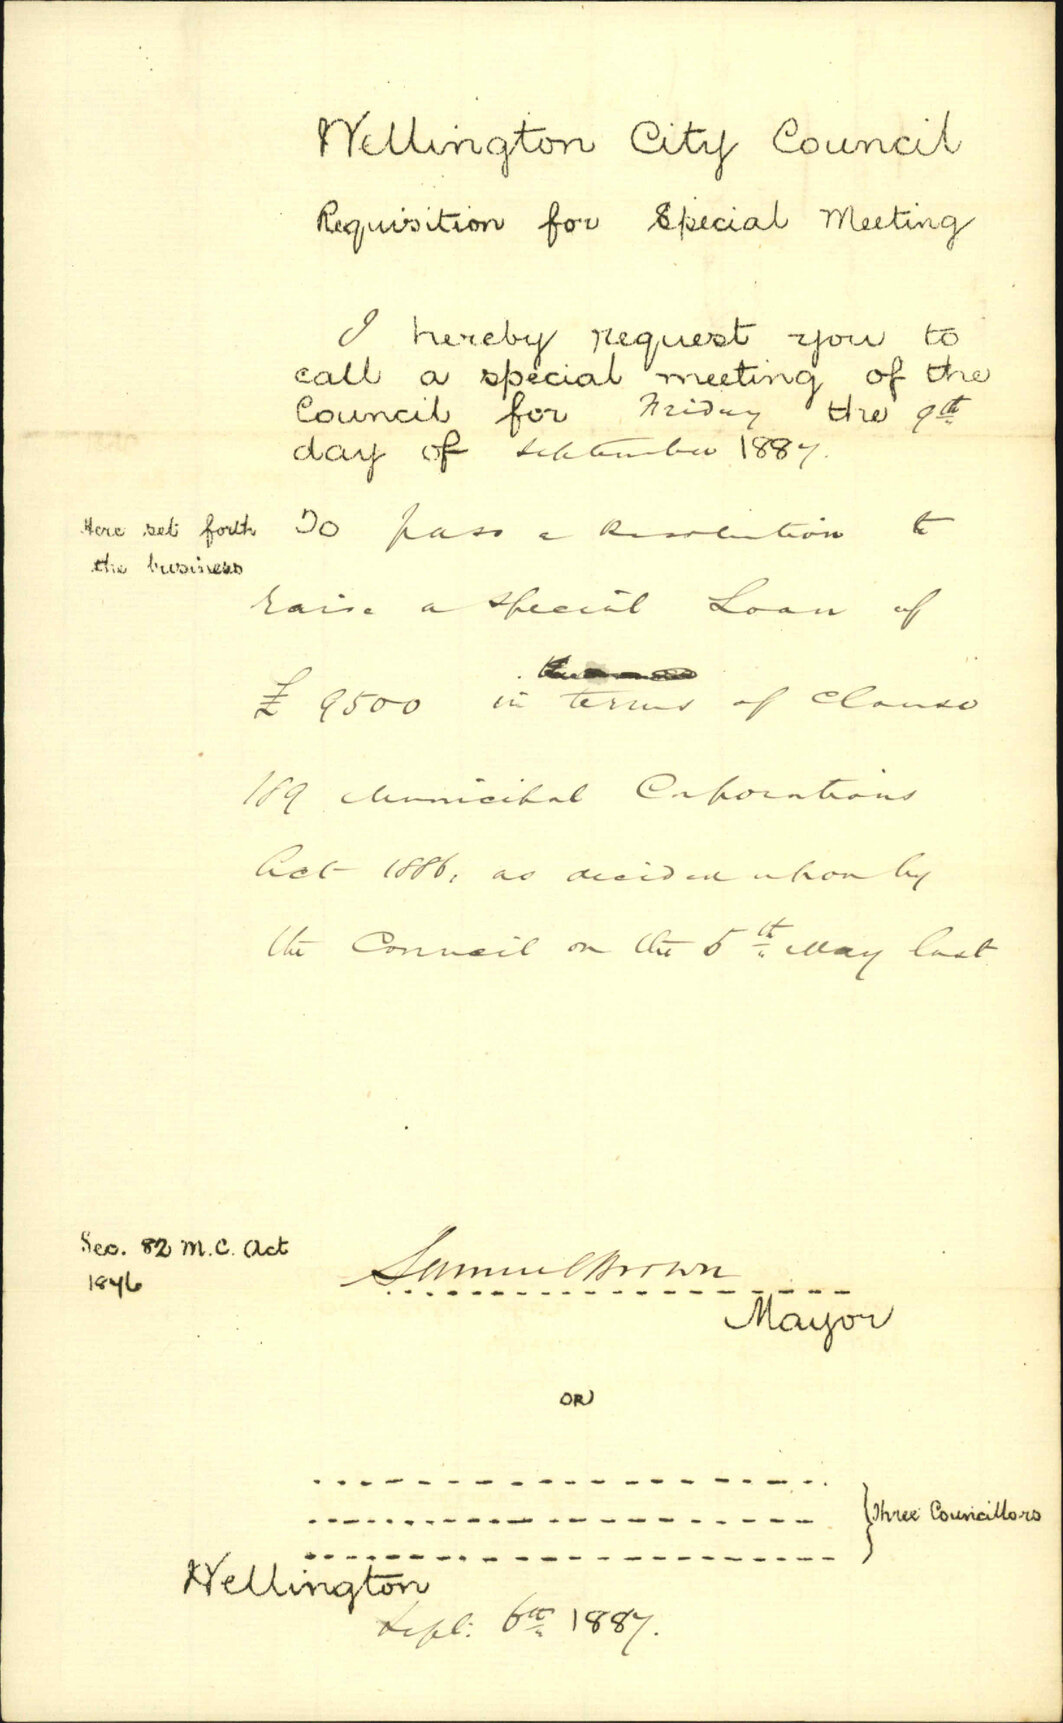 Wellington City Council
Requisition for Special Meeting
I hereby request you to
call a special meeting of the
Council for Friday the 9th
day of September 1887.
Here set forth
the business
To pass a Resolution to
raise a special Loan of
£ 9500 in terms of Clause
189 Municipal Corporations
Act 1886, as decided upon by
the Council on the 5th May last
Sec. 82 M.C. Act
1876
Samuel Brown
Mayor
OR
Three Councillors
Wellington
Sept. 6th 1887.